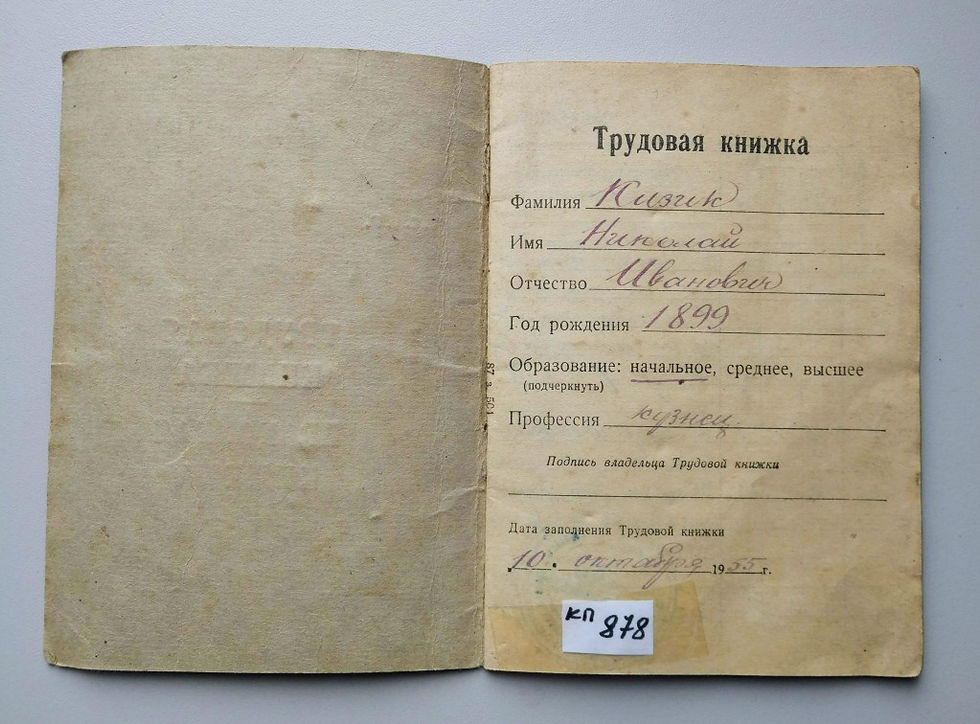 Трудовая книжка
Фамилия Кизик
Имя Николай
Отчество Иванович
Год рождения 1899
Образование: начальное, среднее, высшее
(подчеркнуть)
Профессия кузнец
Подпись владельца Трудовой книжки
Дата заполнения Трудовой книжки
10. октября 1955 г.
КП 878